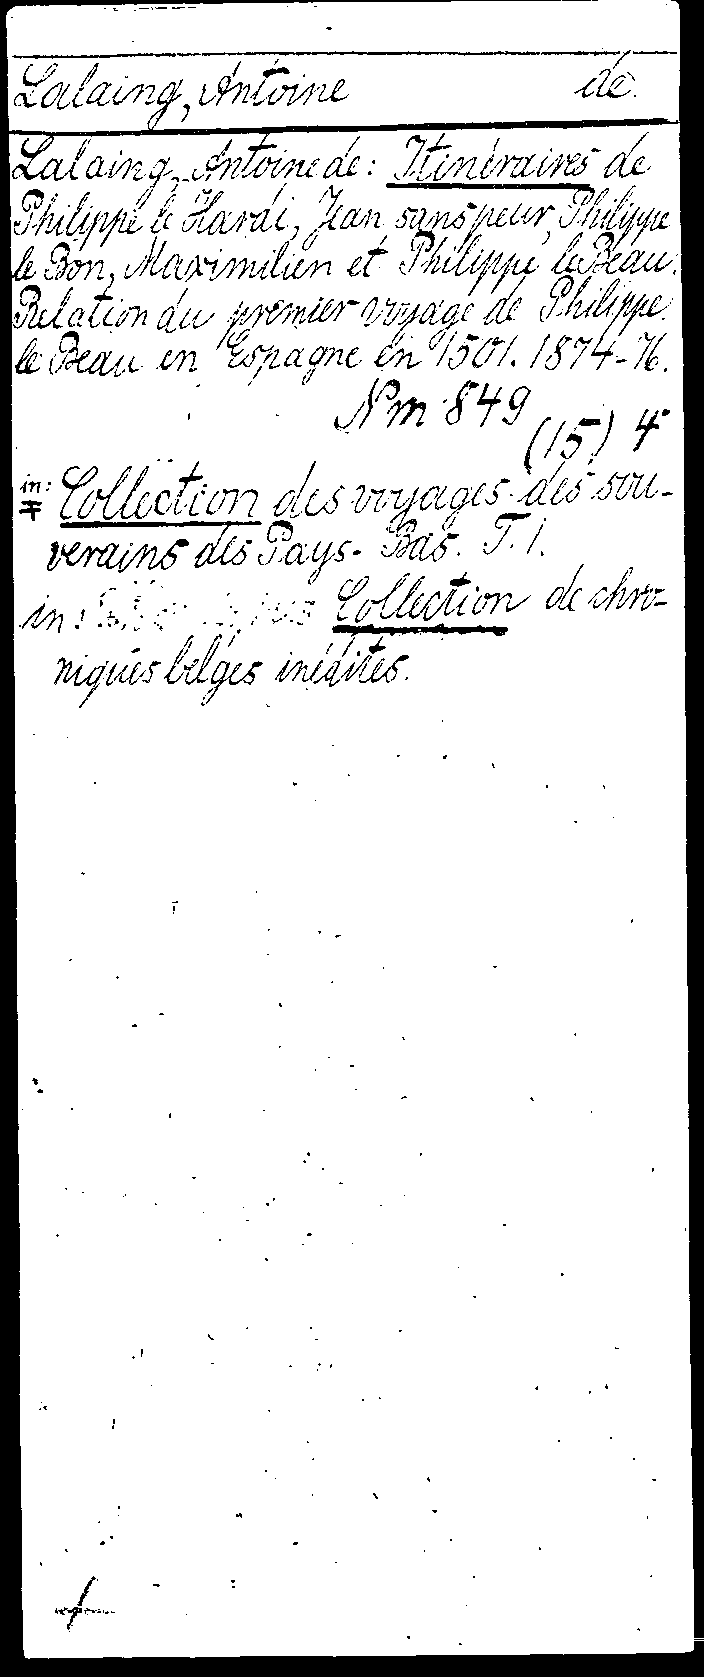 Lalaing, Antoine de.
Lalaing, Antoine de: Itinéraires de
Philippe le Hardi, Jean sans peur, Philippe
le Bon, Maximilien et Philippe le Beau.
Relation du premier voyage de Philippe
le Beau en Espagne en 1501. 1874-76.
Nm 849
(15) 4°
in: Collection des voyages des sou-
verains des Pays-Bas. T. 1.
in: Collection de chro-
niques belges inédites.